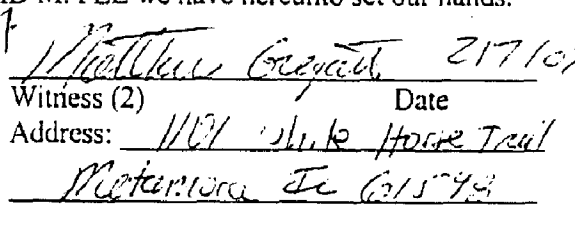 ID M. PEE we have hereunto set our hands.
Matthew 2/7/0
Witness (2) Date
Address: 1101 White Horse Trail
Metamora IL 61548